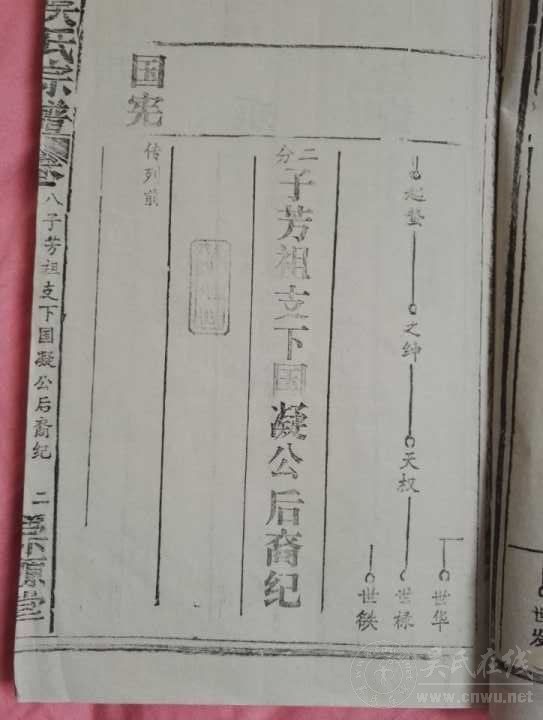 世发
世华
世禄
世铁
天权
之绅
二分
子芳祖支下国凝公后裔纪
国宪
传列前
吴氏宗谱
卷八 子芳祖支下国凝公后裔纪 二
吴氏在线
www.cnwu.net